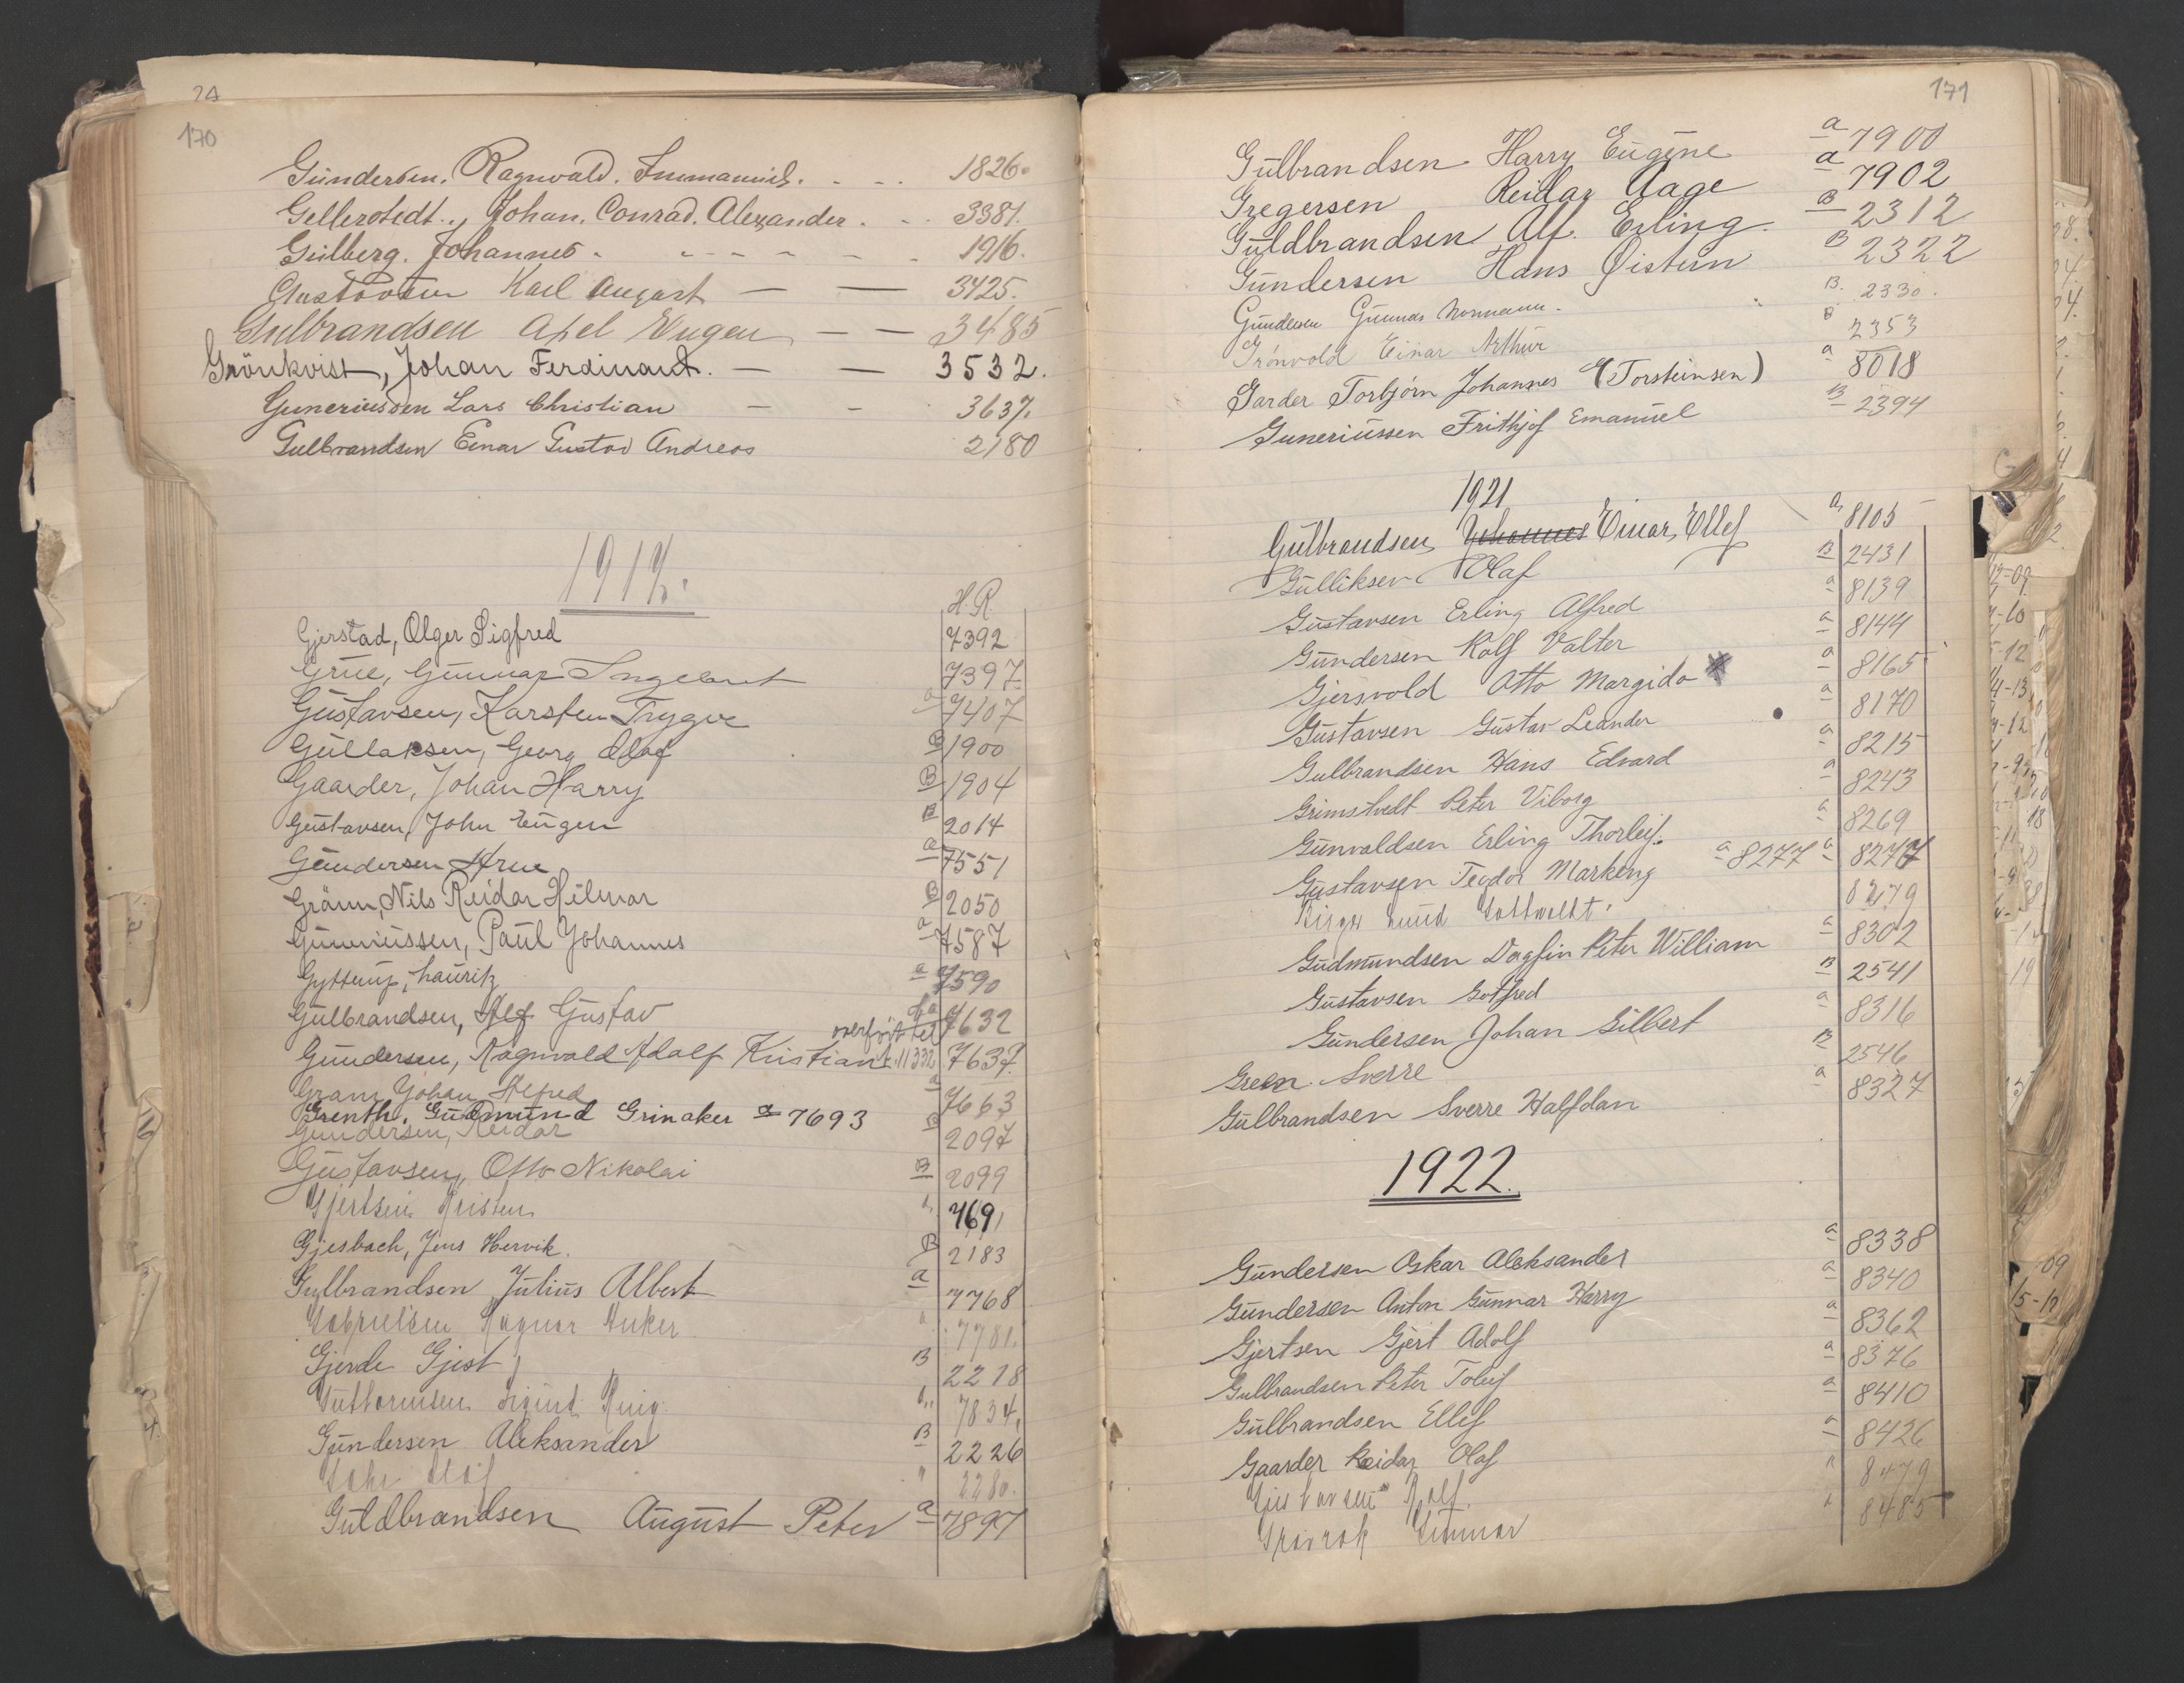 24
170
Gundersen, Ragnvald. Immanuel. - - - 1826.
Gellerstedt, Johan. Conrad. Alexander. - - 3381.
Gulberg. Johannes - - - - - - 1916.
Gustavsen Karl August — — 3425.
Gulbrandsen Axel Eugen — — 3485
Grönkvist, Johan Ferdinand. — — 3532.
Guneriussen Lars Christian — - 3637.
Gulbrandsen Einar Gustav Andreas 2180
H.R.
Gjerstad, Olger Sigfred 7392
Grue, Gunnar Ingebret 7397
Gustavsen, Karsten Trygve a 7407
Gullaksen, Georg Olaf B 1900
Gaarder, Johan Harry B 1904
Gustavsen, John Eugen B 2014
Gundersen Arne a 7551
Gränn, Nils Reidar Hilmar B 2050
Gunniussen, Paul Johannes a 7587
Gyttrup, Lauritz a 7590
Gulbrandsen, Alf Gustav 7632
overført til
Gundersen, Ragnvald Adolf Kristian 11332 7637.
Gram Johan Alfred a 7663
Grenth, Gudmund Grinaker a 7693
Gundersen, Reidar B 2097
Gustavsen, Otto Nikolai B 2099
Gjertsen Kristen 7691
Gjesbach, Jens Hervik. B 2183
Gulbrandsen Julius Albert a 7768
Gabrielsen Ragnar Anker 7781.
Gjerde Gjest B 2218
Guttormsen Sigurd 7834.
Gundersen Aleksander B 2226
Olaf " 2280.
Guldbrandsen August Peter a 7897
171
Gulbrandsen Harry Eugene a 7900
Gregersen Reidar Aage a 7902
Guldbrandsen Alf. Erling. B 2312
Gundersen Hans Øistein B 2322
Gundersen Gunnar Normann. B. 2330.
Grønvold Einar Arthur B 2353
Garder Torbjørn Johannes (Torsteinsen) a 8018
Guneriussen Frithjof Emanuel B 2394
1921
Gulbrandsen Johannes Einar, Ellef a 8105
Gulliksen Olaf B 2431
Gustavsen Erling Alfred a 8139
Gundersen Rolf Valter a 8144
Gjersvold Otto Margido a 8165
Gustavsen Gustav Leander a 8170
Gulbrandsen Hans Edvard a 8215
Grimstvedt Peter Viborg a 8243
Gunvaldsen Erling Thorleif. a 8269
Gustavsen Teodor Markeng a 8277 a 8277
Birger Lund 8279
Gudmundsen Dagfin Peter William a 8302
Gustavsen Gotfred B 2541
Gundersen Johan Gilbert a 8316
Green. Sverre B 2546
Gulbrandsen Sverre Halfdan a 8327
1922.
Gundersen Oskar Aleksander a 8338
Gundersen Anton Gunnar Harry a 8340
Gjertsen Gjert Adolf a 8362
Gulbrandsen Peter Tolleif a 8376
Gulbrandsen Ellef a 8410
Gaarder Reidar Olaf a 8426
Gustavsen Rolf. 8479
Gunnar 8485